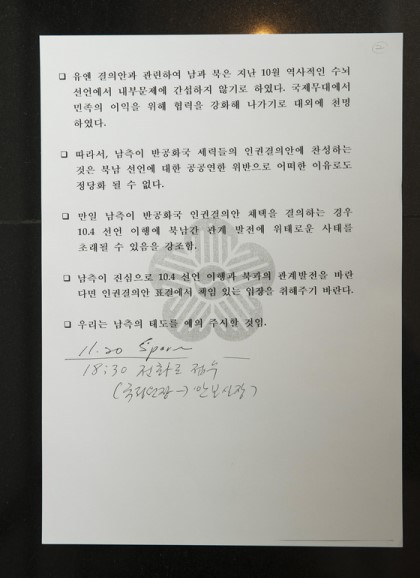 ❑ 유엔 결의안과 관련하여 남과 북은 지난 10월 역사적인 수뇌
선언에서 내부문제에 간섭하지 않기로 하였다. 국제무대에서
민족의 이익을 위해 협력을 강화해 나가기로 대외에 천명
하였다.
❑ 따라서, 남측이 반공화국 세력들의 인권결의안에 찬성하는
것은 북남 선언에 대한 공공연한 위반으로 어떠한 이유로도
정당화 될 수 없다.
❑ 만일 남측이 반공화국 인권결의안 채택을 결의하는 경우
10.4 선언 이행에 북남간 관계 발전에 위태로운 사태를
초래될 수 있음을 강조함.
❑ 남측이 진심으로 10.4 선언 이행과 북과의 관계발전을 바란
다면 인권결의안 표결에서 책임 있는 입장을 취해주기 바란다.
❑ 우리는 남측의 태도를 예의 주시할 것임.
11-20
18:30 전화로 접수
(국정원장→안보실장)